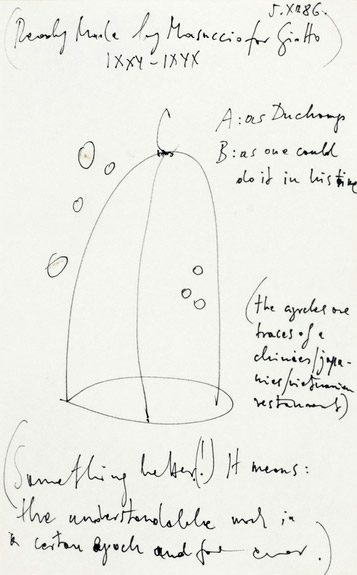 5.XII86.
(Ready Made by Masaccio for Giotto)
IXXY-IXYX
A: as Duchamp
B: as one could
do it in his time
(the cyrcles are
traces of a
chinies/japa-
nies/vietnamien
restaurant)
(Something better(!) It means:
the understandable work in
a certan epoch and for ever.)